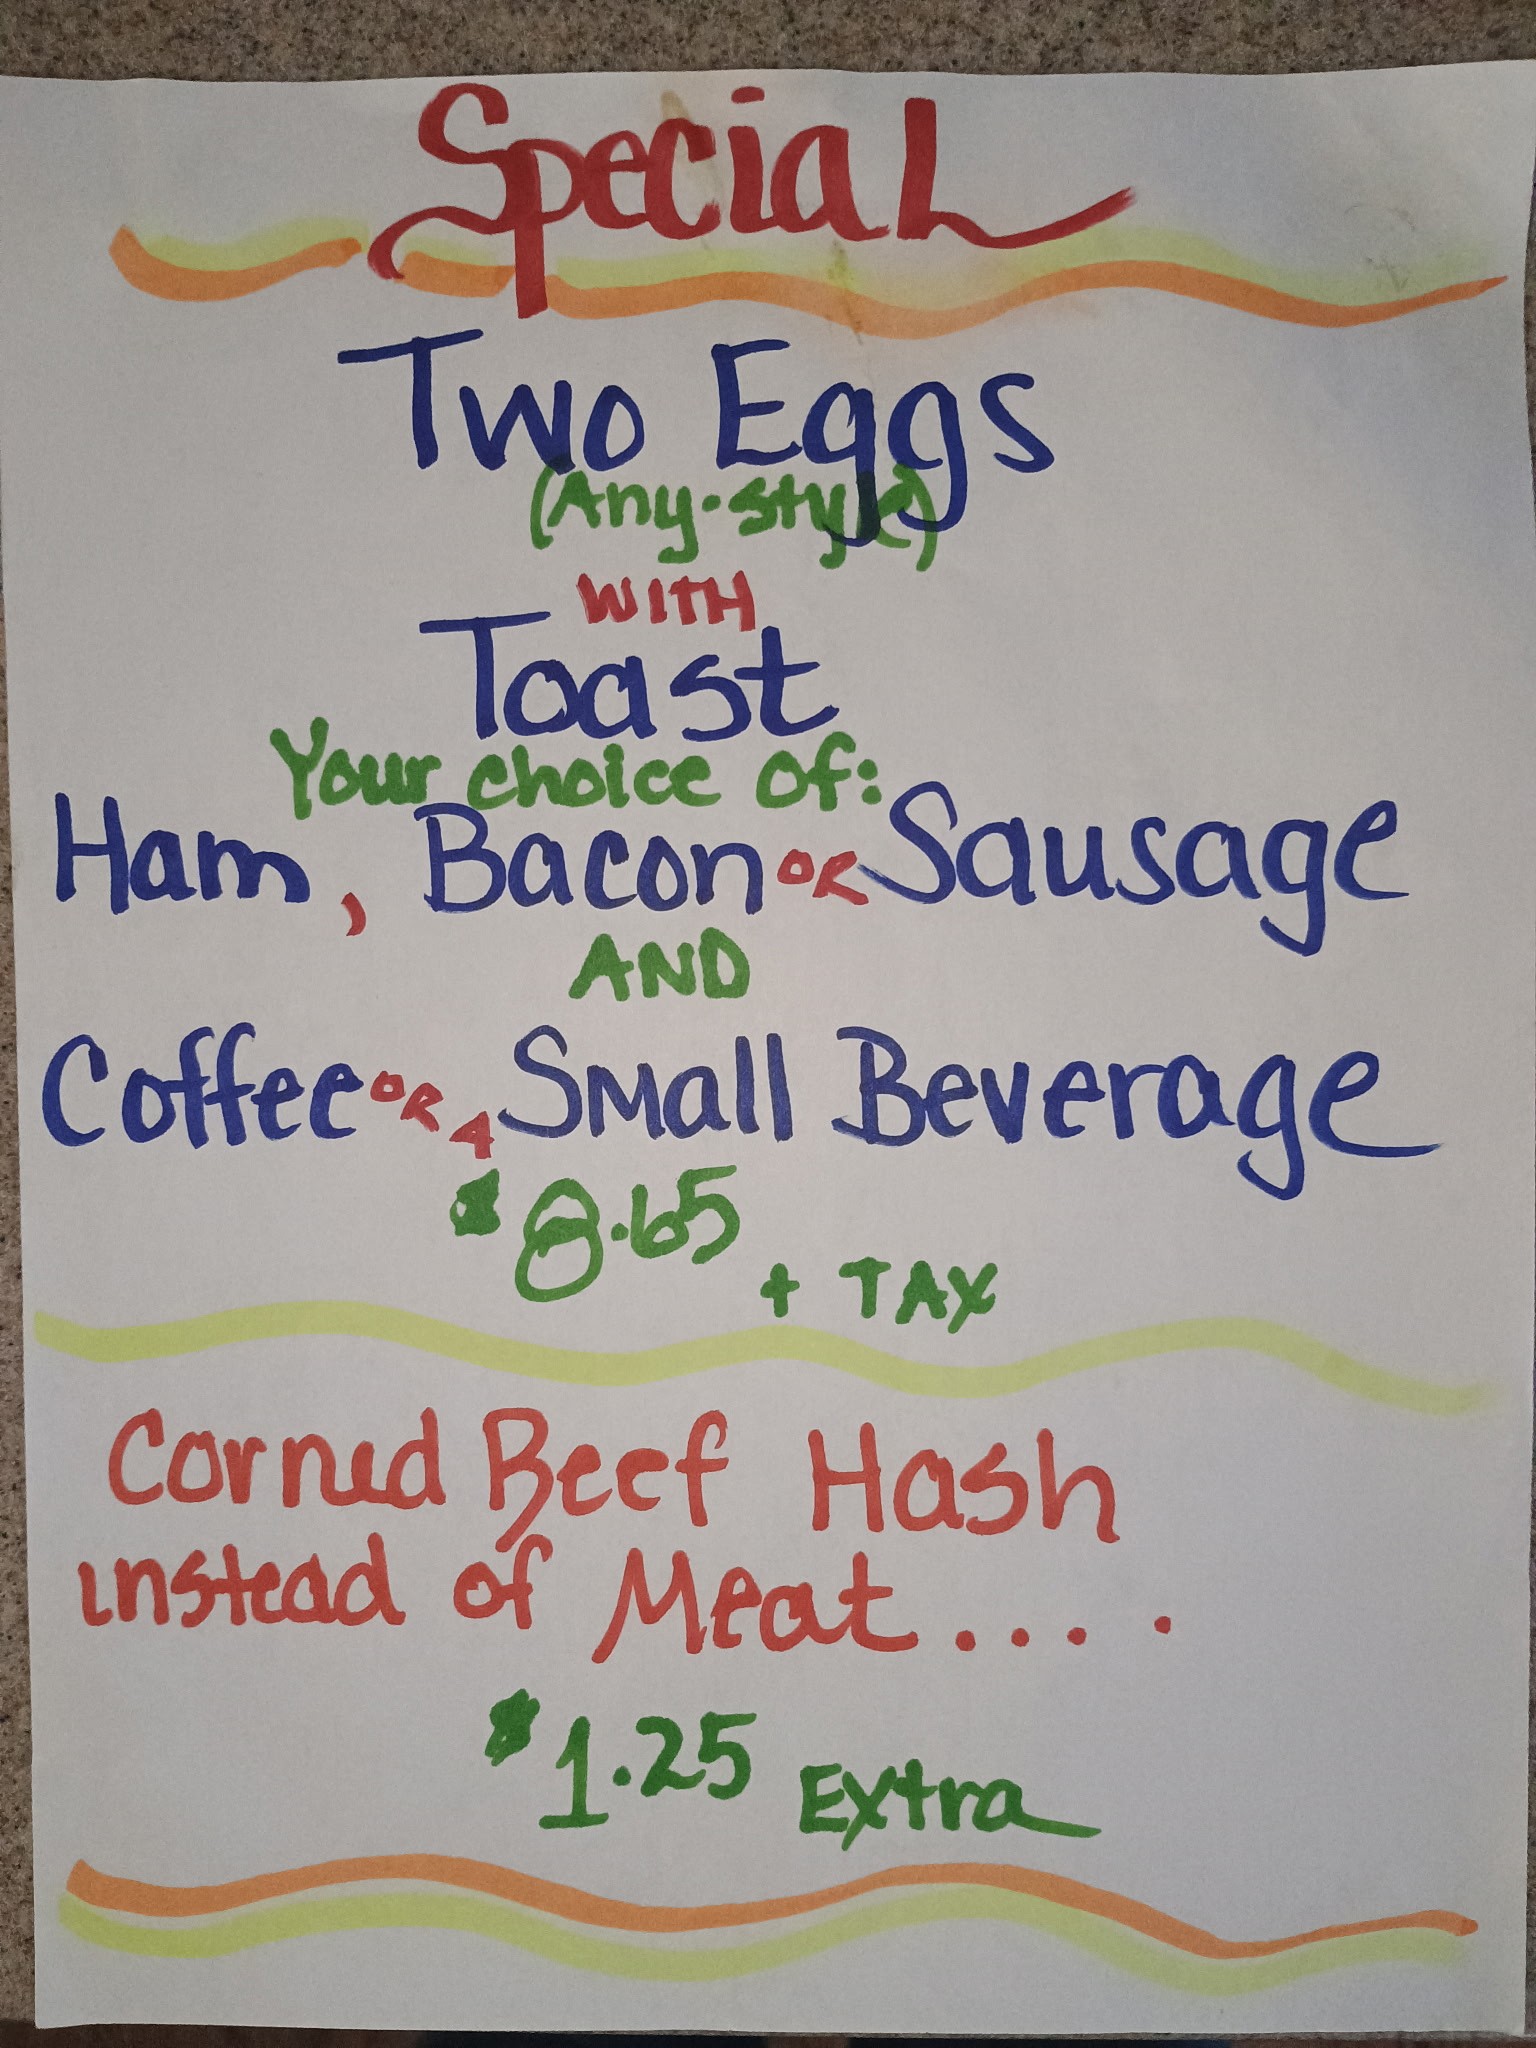 Special
Two Eggs
(Any-style)
WITH
Toast
Your choice of:
Ham, Bacon OR Sausage
AND
Coffee OR A Small Beverage
$8.65 + TAX
Corned Beef Hash
instead of Meat....
$1.25 Extra